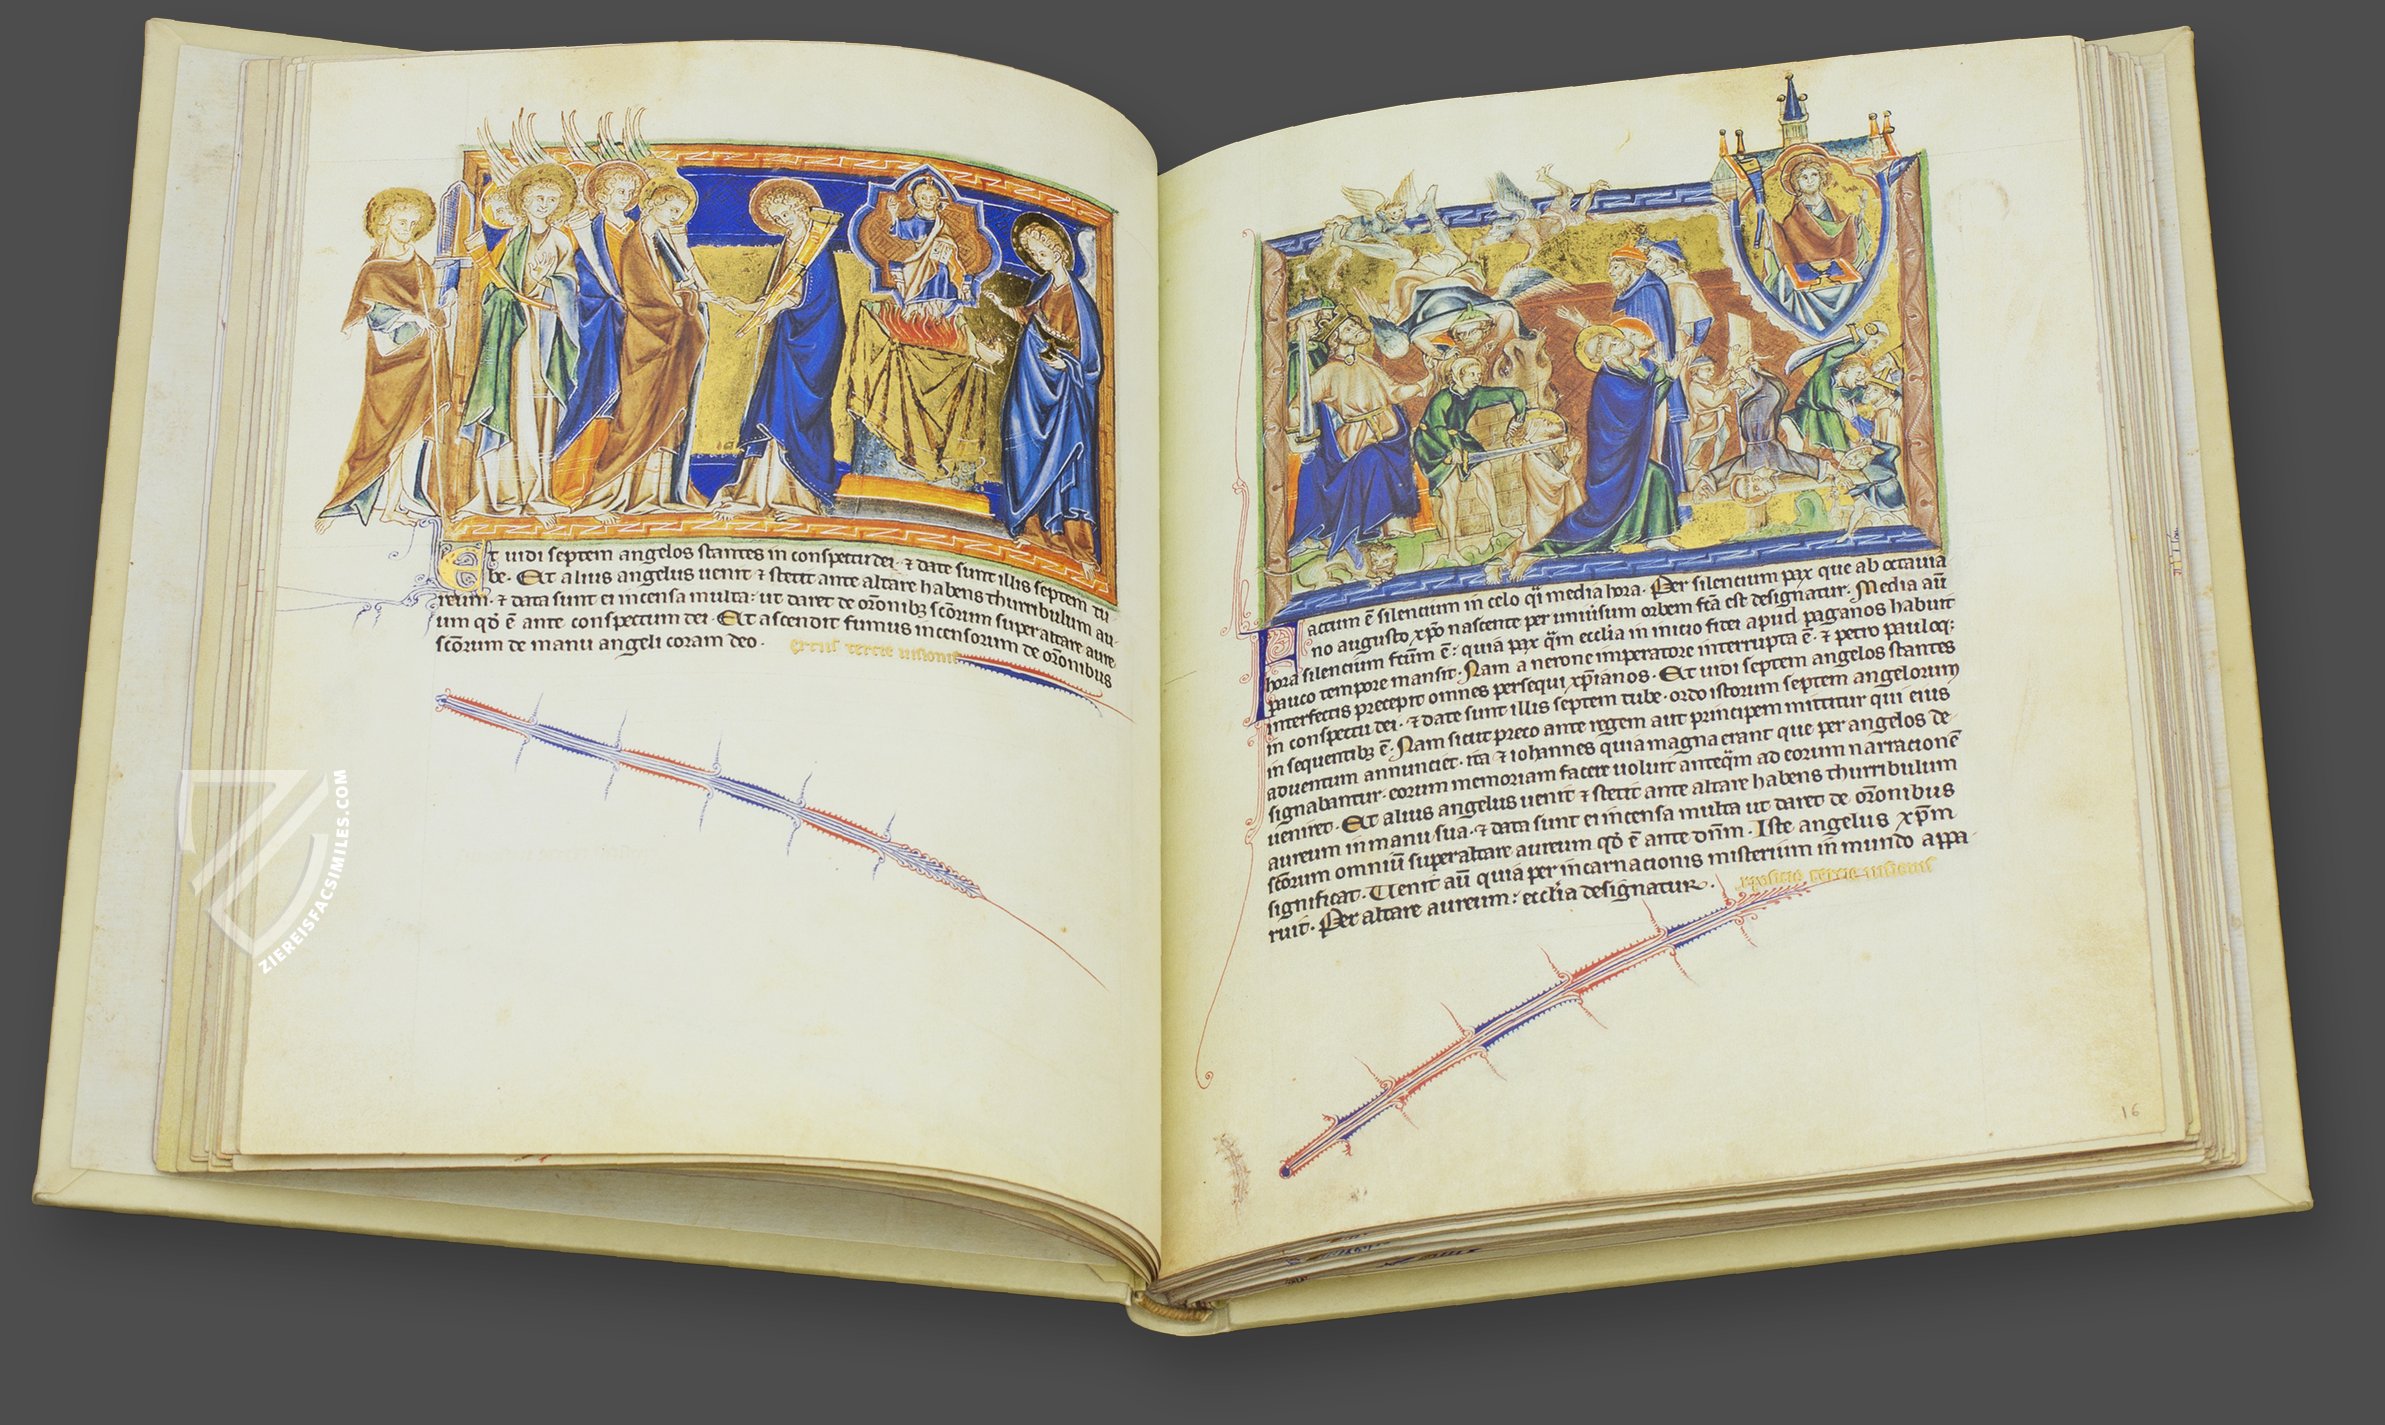 Et uidi septem angelos stantes in conspectu dei · ⁊ date sunt illis septem tu
be · Et alius angelus uenit ⁊ stetit ante altare habens thurribulum au
reum · ⁊ data sunt ei incensa multa : ut daret de or̄onibꝫ sc̄orum super altare aure
um qd̄ ē ante conspectum dei · Et ascendit fumus incensorum de or̄onibus
sc̄orum de manu angeli coram deo ·
tercie uisionis
Factum ē silencium in celo q̄i media hora · Per silencium pax que ab octauia
no augusto xp̄o nascente per uniuersum orbem fc̄a est designatur · Media au̅
hora silencium fc̄um ē : quia pax q̄m eccl̄ia in inicio fidei apud paganos habuit
pauco tempore mansit · Nam a nerone imperatore interrupta ē · ⁊ petro pauloqꝫ
interfectis precepit omnes persequi xp̄ianos · Et uidi septem angelos stantes
in conspectu dei · ⁊ date sunt illis septem tube · ordo istorum septem angelorum
in sequentibꝫ ē · Nam sicut preco ante regem aut principem mittitur qui eius
aduentum annunciet · ita ⁊ iohannes quia magna erant que per angelos de
signabantur · eorum memoriam facere uoluit anteq̄m ad eorum narracionē
ueniret · Et alius angelus uenit ⁊ stetit ante altare habens thurribulum
aureum in manu sua · ⁊ data sunt ei incensa multa ut daret de or̄onibus
sc̄orum omniū super altare aureum qd̄ ē ante dn̄m · Iste angelus xp̄m
significat · Uenit au̅ quia per incarnacionis misterium in mundo appa
ruit · Per altare aureum : eccl̄ia designatur ·
expositio tercie uisionis
16
ZIEREISFACSIMILES.COM